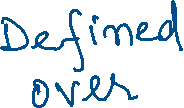 Defined
over